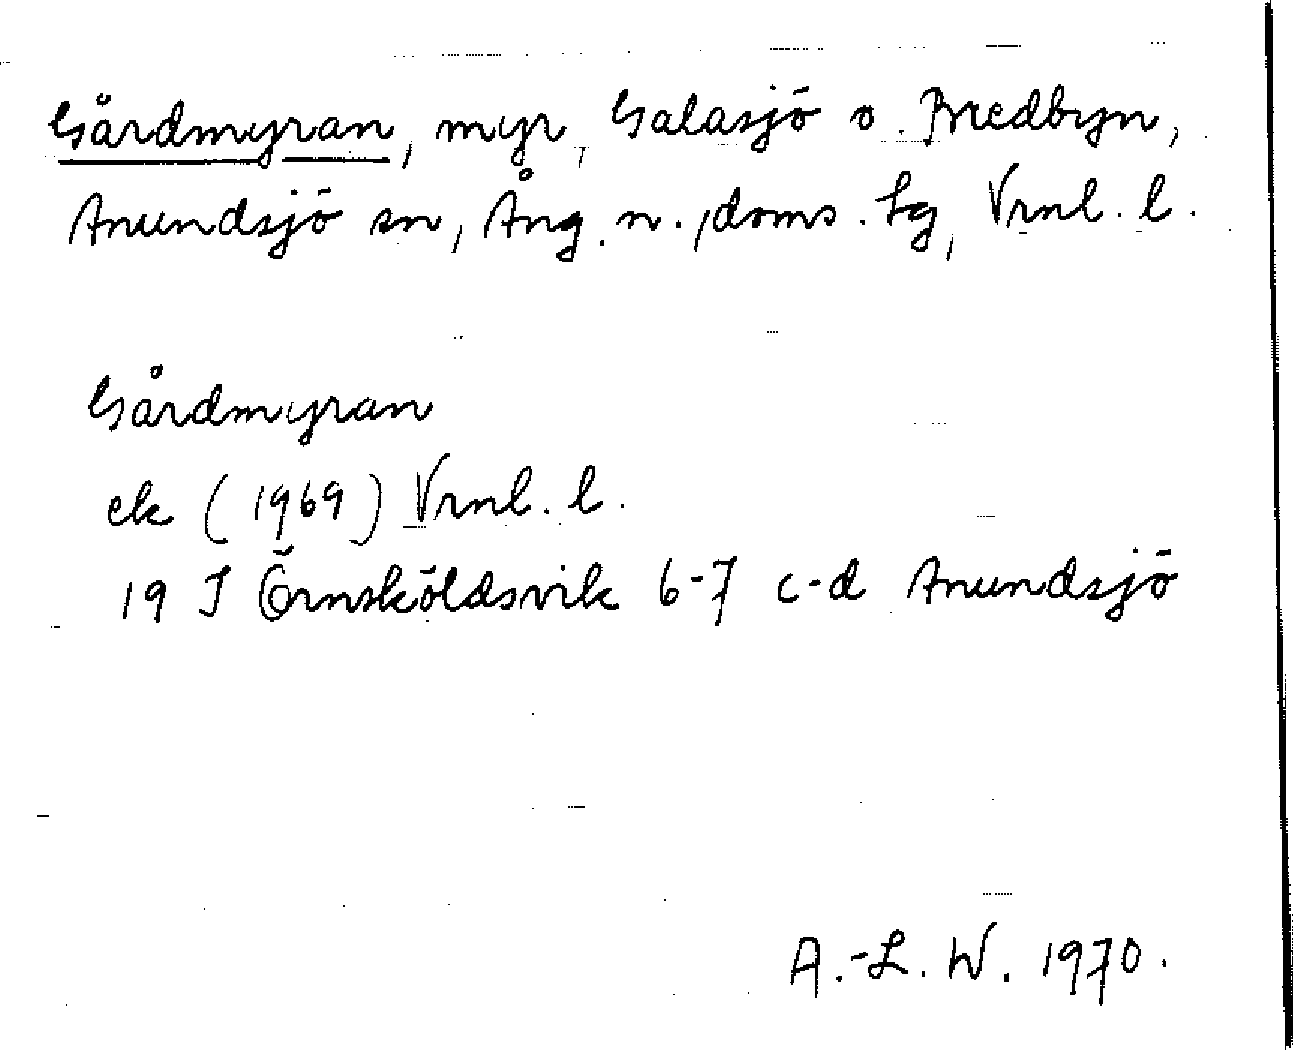 Gårdmyran, myr, Galasjö o. Bredbyn,
Anundsjö sn, Ång. n. doms. tg, Vrnl. l.
Gårdmyran
ek (1969) Vrnl. l.
19 J Örnsköldsvik 6-7 c-d Anundsjö
A.-L. W. 1970.